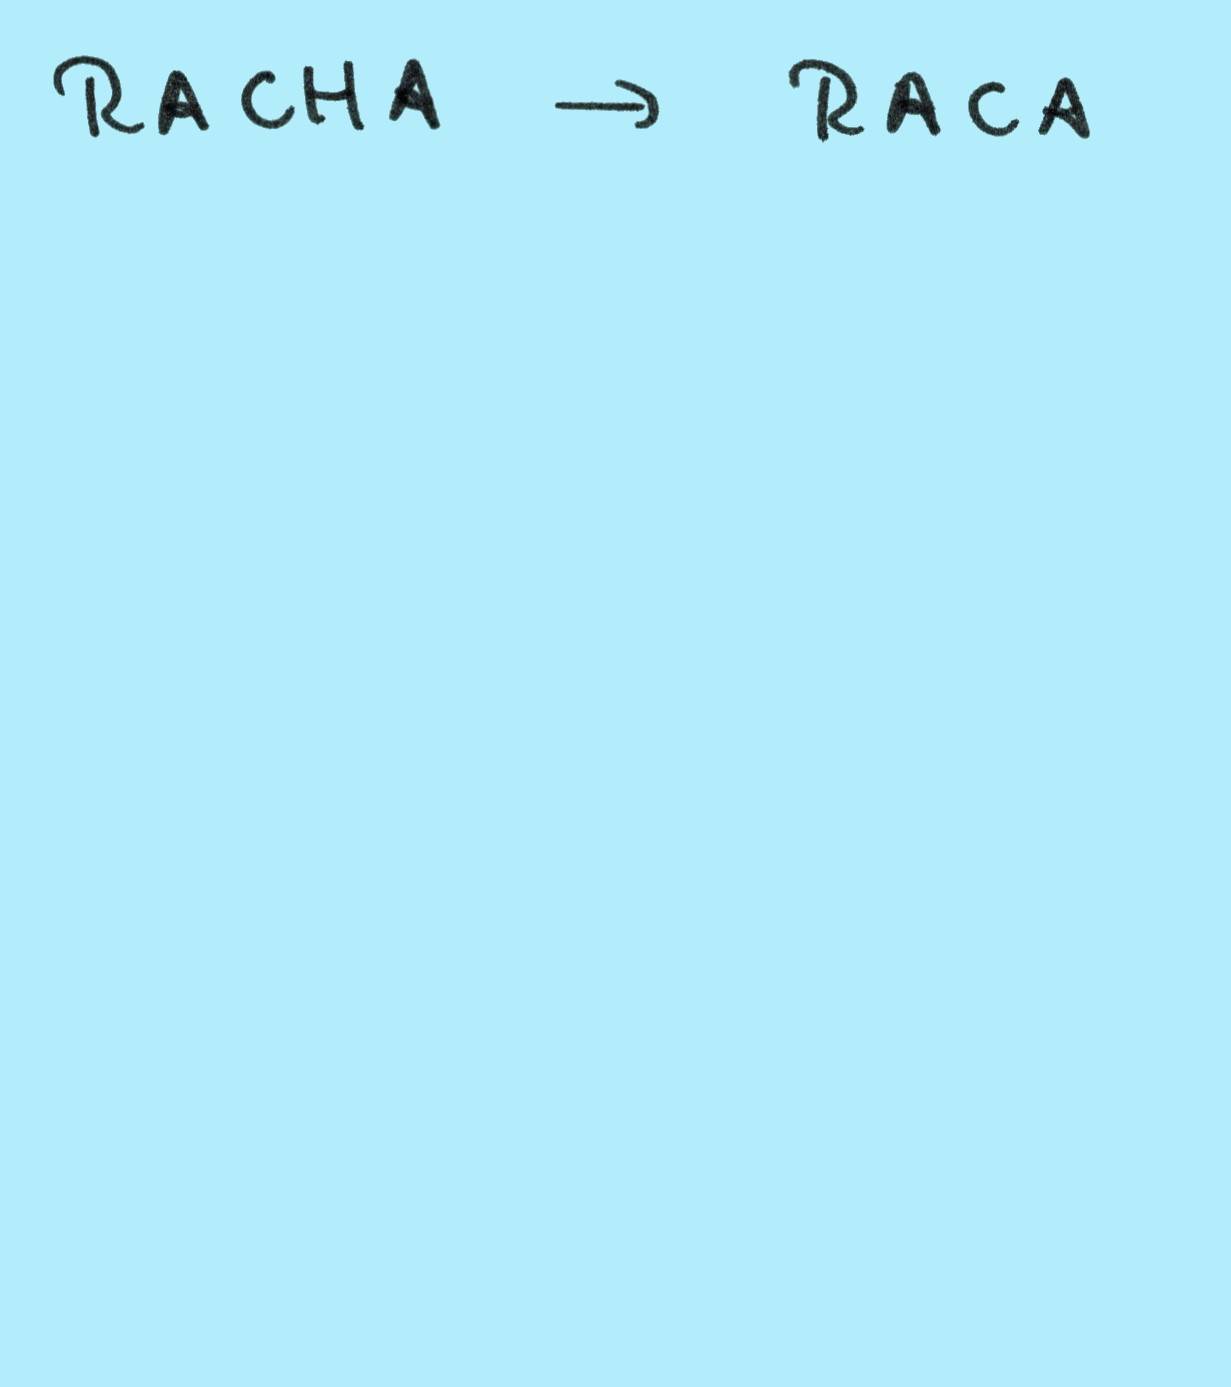 RACHA → RACA